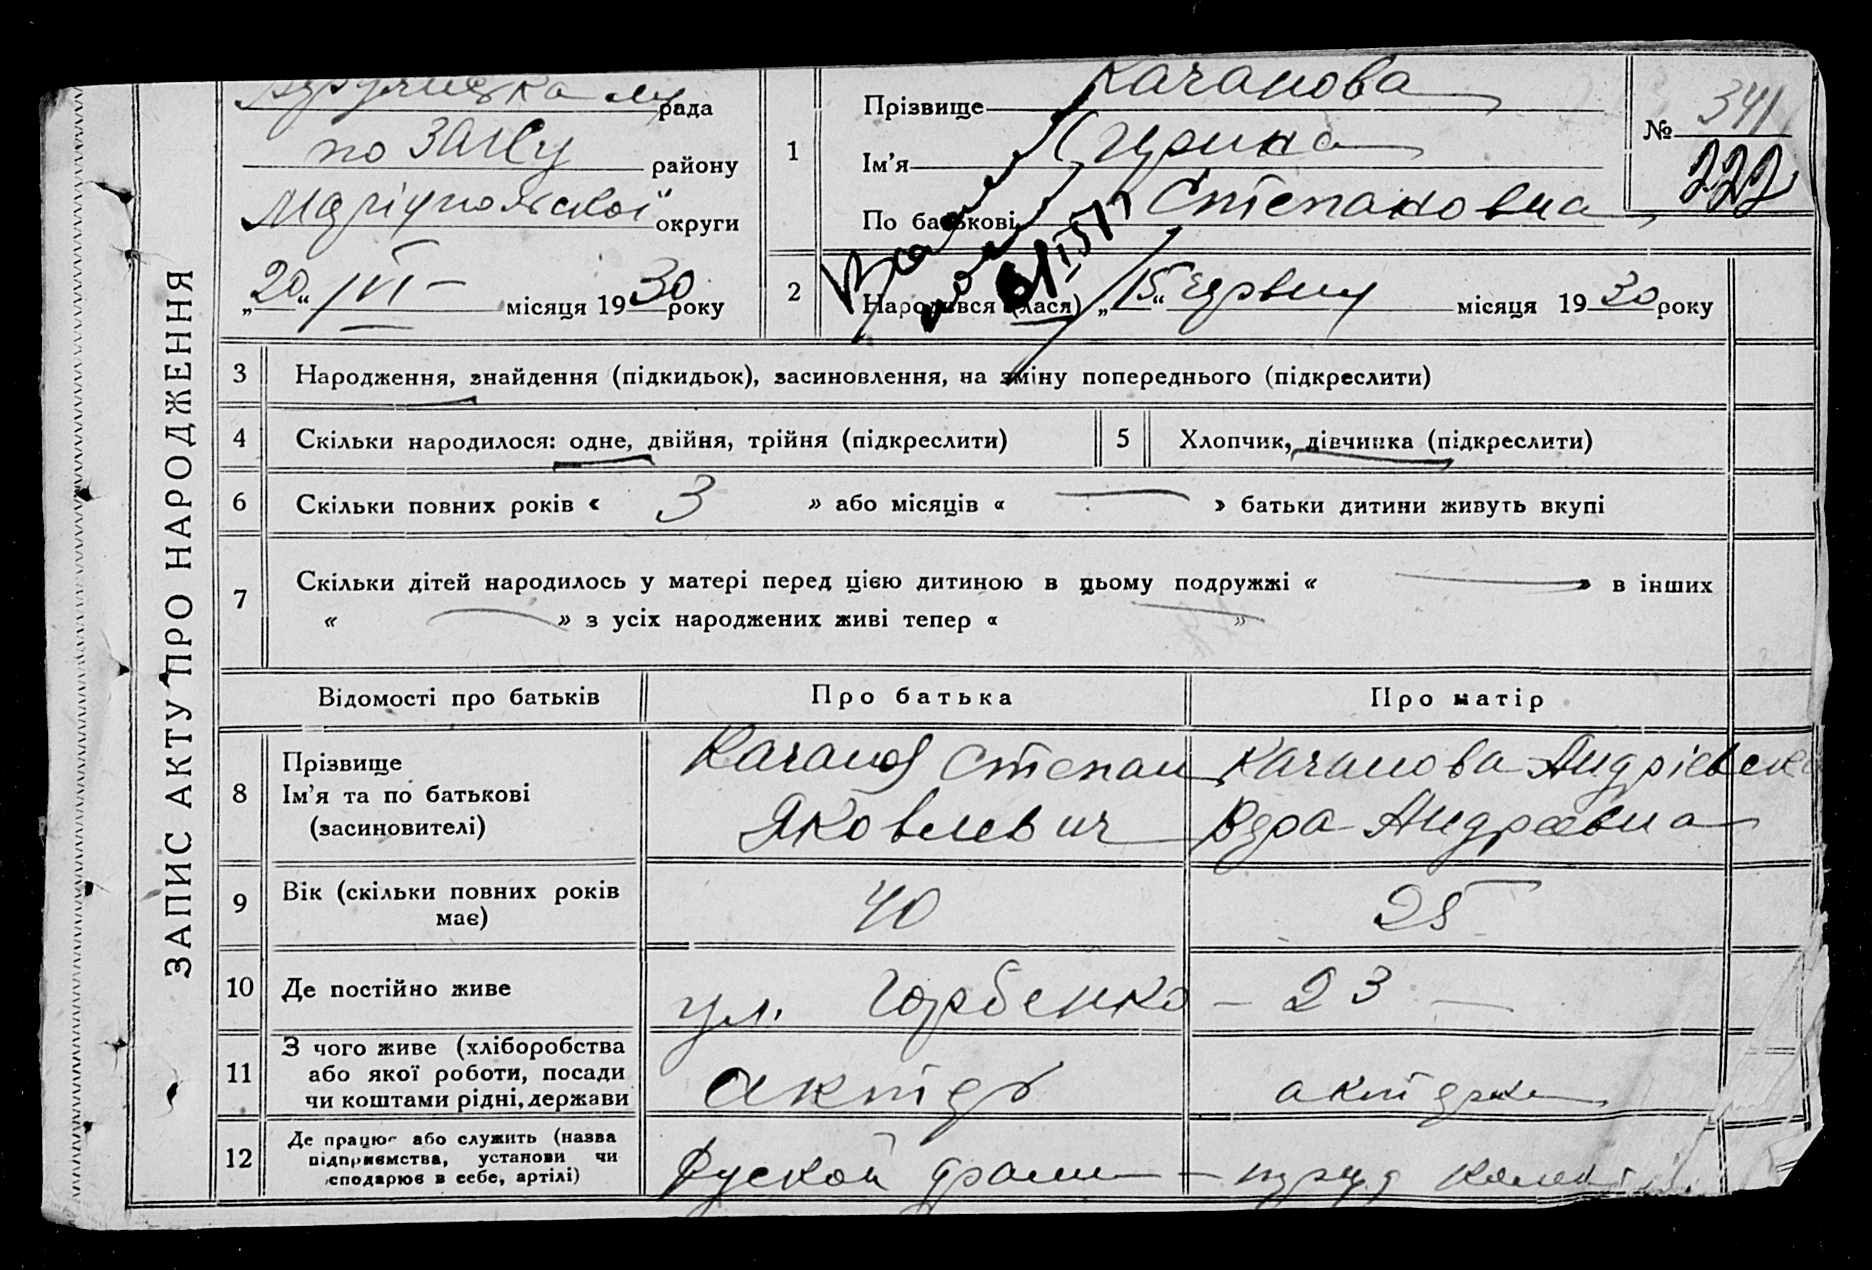 рада
по ЗАГСу району
Маріупольської округи
„20" VI місяця 1930 року
1
Прізвище Качанова
Ім'я Ирина
По батькові Степановна
№ 341
222
2
Народився (лася) „15" червня місяця 1930 року
ЗАПИС АКТУ ПРО НАРОДЖЕННЯ
3 Народження, знайдення (підкидьок), засиновлення, на зміну попереднього (підкреслити)
4 Скільки народилося: одне, двійня, трійня (підкреслити)
5 Хлопчик, дівчинка (підкреслити)
6 Скільки повних років « 3 » або місяців « — » батьки дитини живуть вкупі
7 Скільки дітей народилось у матері перед цією дитиною в цьому подружжі « — » в інших
« — » з усіх народжених живі тепер « — »
Відомості про батьків Про батька Про матір
8 Прізвище
Ім'я та по батькові
(засиновителі)
Качанов Степан
Яковлевич
Качанова Андрієвска
Вера Андреевна
9 Вік (скільки повних років
має)
40
25
10 Де постійно живе ул. Горбенко – 23 —
11 З чого живе (хліборобства
або якої роботи, посади
чи коштами рідні, держави
актер
актриса
12 Де працює або служить (назва
підприємства, установи чи
господарює в себе, артілі)
Руской драм —